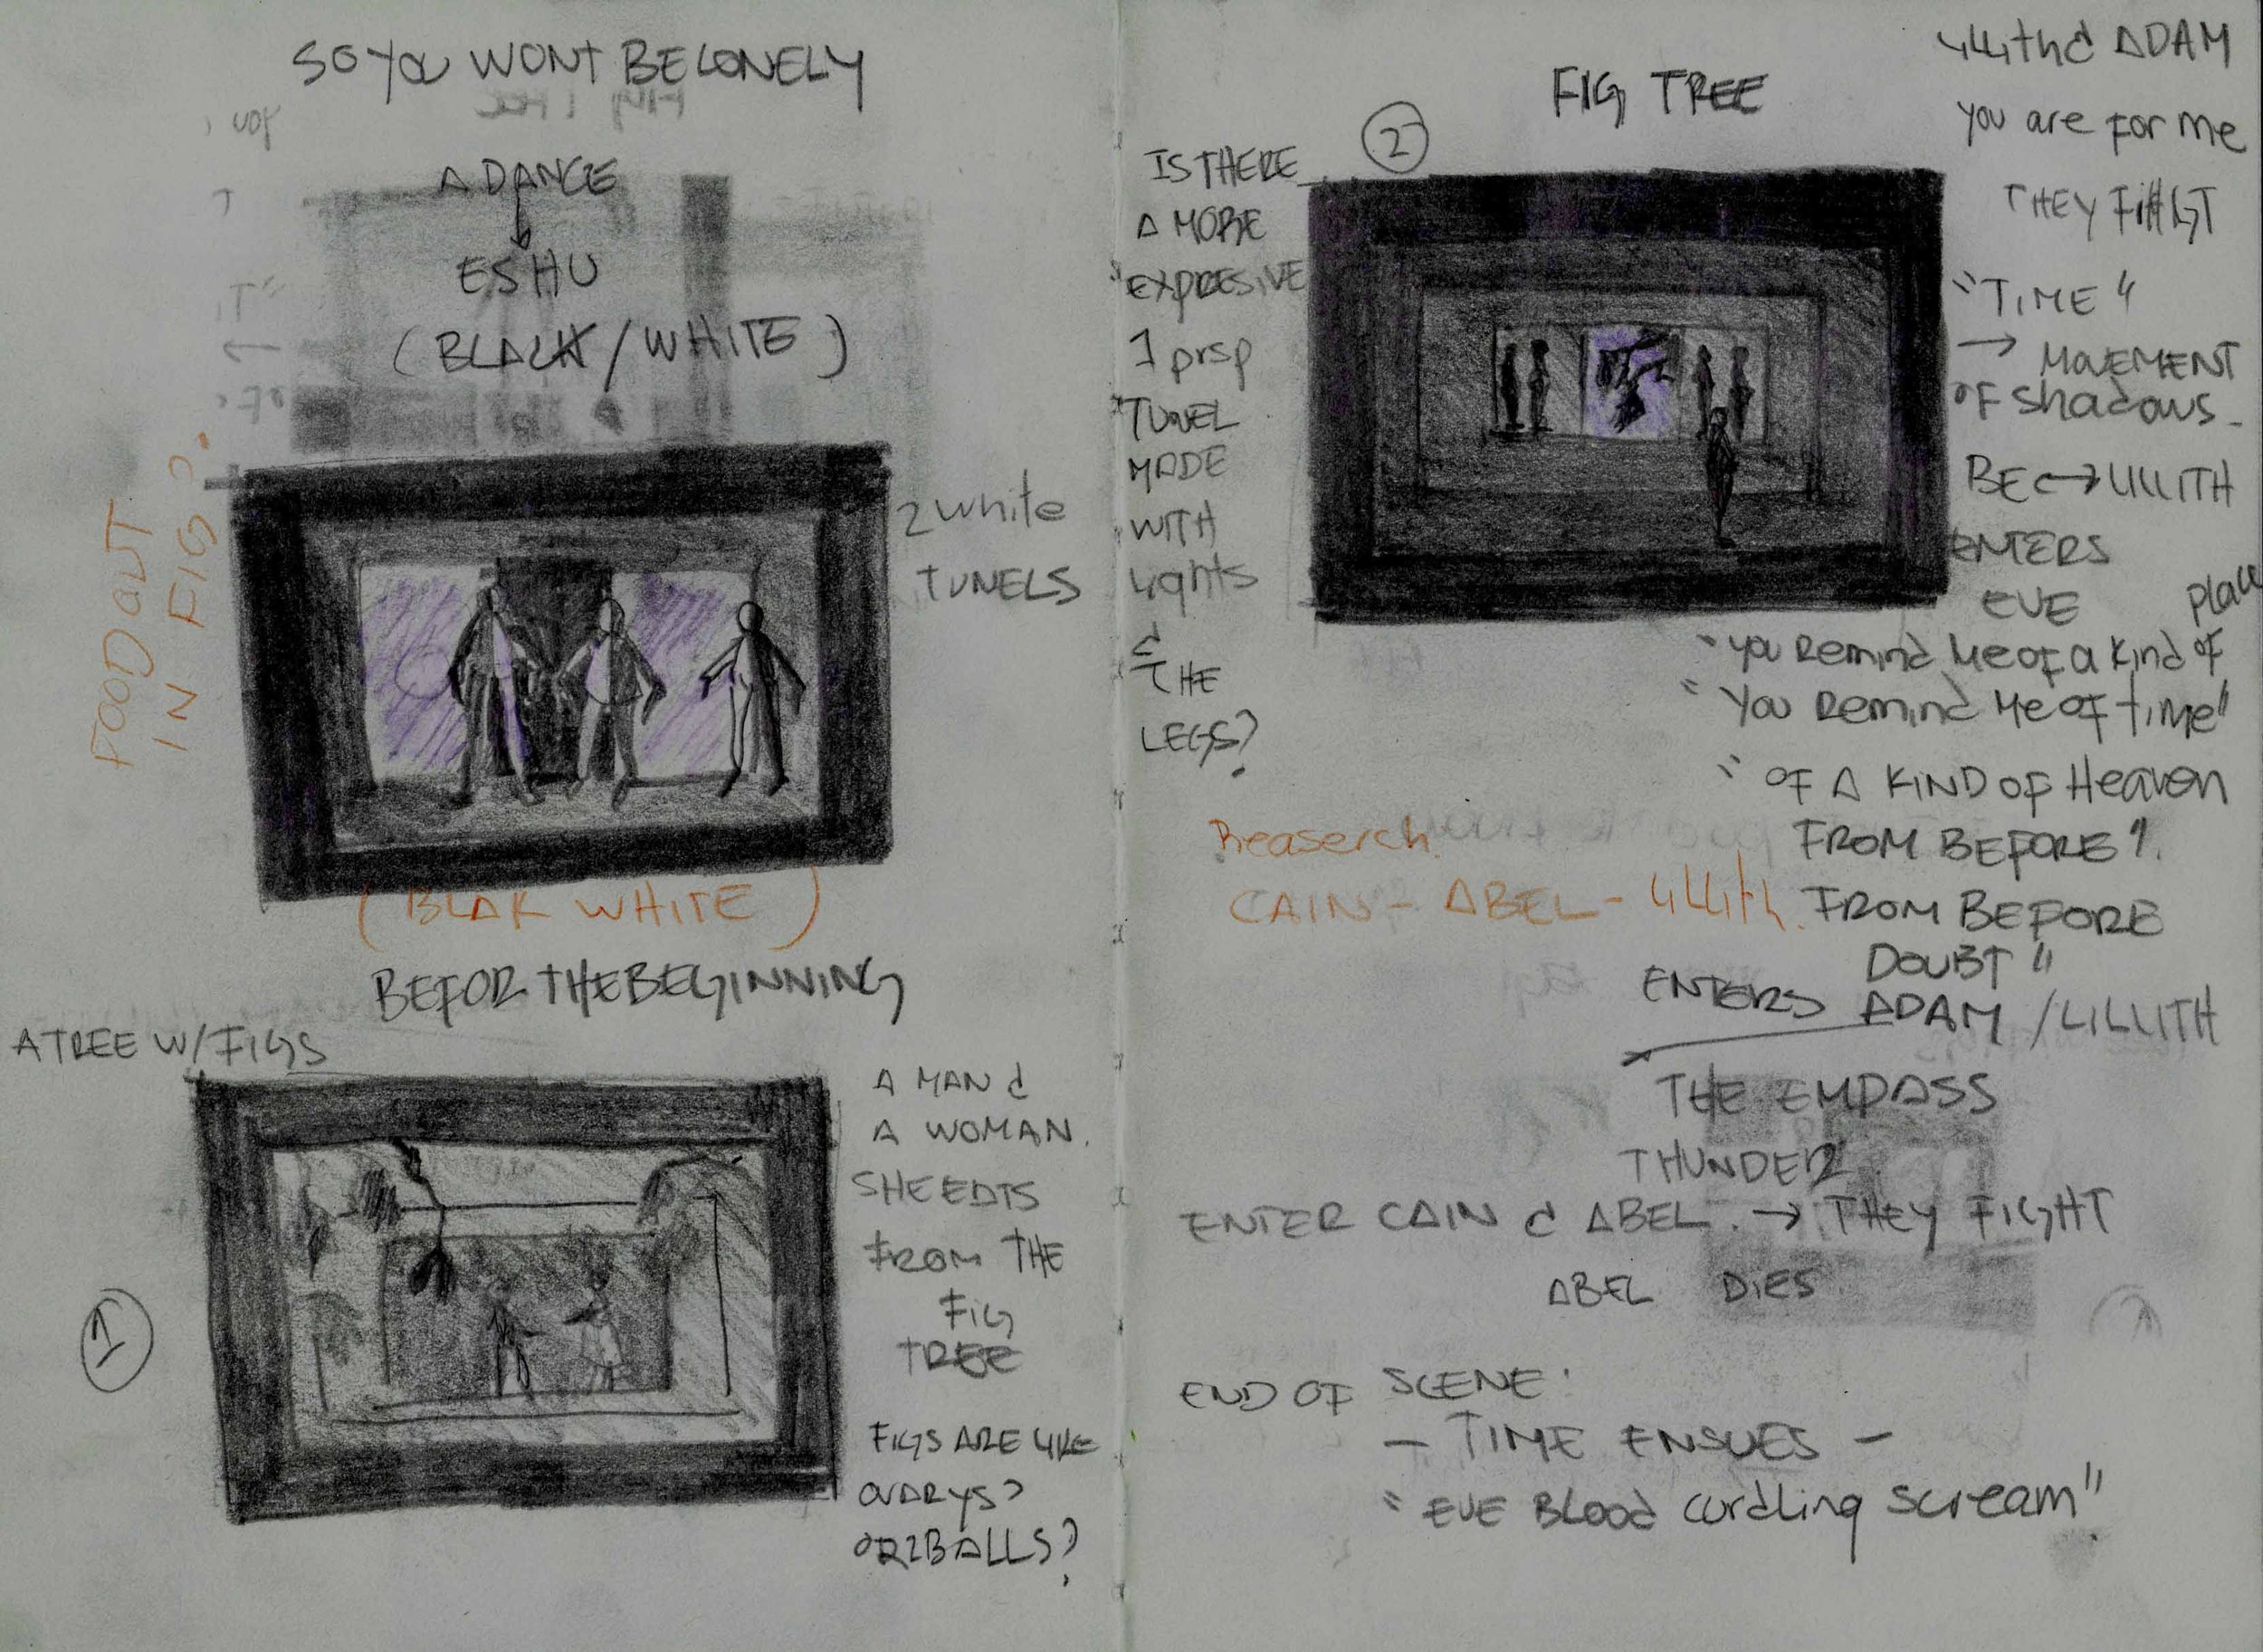 SO YOU WONT BE LONELY
A DANCE
ESHU
(BLACK/WHITE)
FOOD OUT
IN FIG?
2 white
TUNELS
(BLAK WHITE)
BEFOR THE BEGINNING
A TREE W/FIGS
1
A MAN &
A WOMAN.
SHE EATS
FROM THE
FIG
TREE
FIGS ARE LIKE
OVARYS?
OR 2 BALLS?
FIG TREE
2
IS THERE
A MORE
"EXPRESIVE
1 prsp
TUNEL
MADE
WITH
Lights
&
THE
LEGS?
Reaserch.
CAIN - ABEL - Lillith.
Lillith & ADAM
You are for me
THEY FIHGT
"TIME"
→ MOVEMENT
OF Shadows.
BE ↔ LILLITH
ENTERS
EVE
place
"You Remind Me of a Kind of
"You Remind Me of time"
"OF A KIND OF Heaven
FROM BEFORE".
FROM BEFORE
DOUBT"
ENTERS ADAM/LILLITH
THE EMPASS
THUNDER.
ENTER CAIN & ABEL. → THEY FIGHT
ABEL DIES
END OF SCENE:
- TIME ENSUES -
"EVE Blood curdling scream"